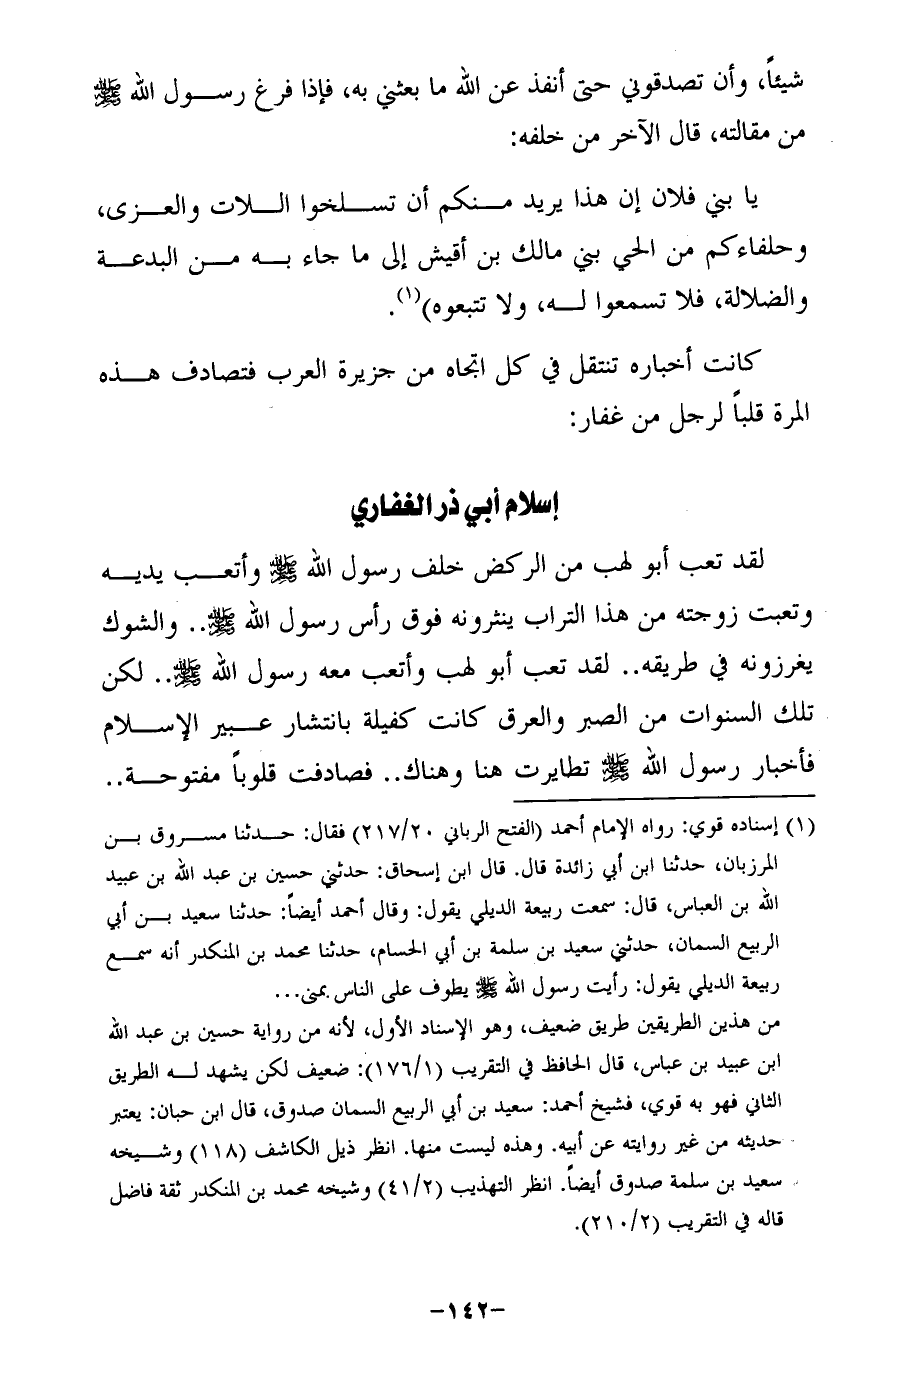 شيئاً، وأن تصدقوني حتى أنفذ عن الله ما بعثني به، فإذا فرغ رسول الله ﷺ
من مقالته، قال الآخر من خلفه:
يا بني فلان إن هذا يريد منكم أن تسلخوا اللات والعزى،
وحلفاءكم من الحي بني مالك بن أقيش إلى ما جاء به من البدعة
والضلالة، فلا تسمعوا له، ولا تتبعوه)(١).
كانت أخباره تنتقل في كل اتجاه من جزيرة العرب فتصادف هذه
المرة قلباً لرجل من غفار:
إسلام أبي ذر الغفاري
لقد تعب أبو لهب من الركض خلف رسول الله ﷺ وأتعب يديه
وتعبت زوجته من هذا التراب ينثرونه فوق رأس رسول الله ﷺ.. والشوك
يغرزونه في طريقه.. لقد تعب أبو لهب وأتعب معه رسول الله ﷺ.. لكن
تلك السنوات من الصبر والعرق كانت كفيلة بانتشار عبير الإسلام
فأخبار رسول الله ﷺ تطايرت هنا وهناك.. فصادفت قلوباً مفتوحة..
(١) إسناده قوي: رواه الإمام أحمد (الفتح الرباني ٢١٧/٢٠) فقال: حدثنا مسروق بن
المرزبان، حدثنا ابن أبي زائدة قال. قال ابن إسحاق: حدثني حسين بن عبد الله بن عبيد
الله بن العباس، قال: سمعت ربيعة الديلي يقول: وقال أحمد أيضاً: حدثنا سعيد بن أبي
الربيع السمان، حدثني سعيد بن سلمة بن أبي الحسام، حدثنا محمد بن المنكدر أنه سمع
ربيعة الديلي يقول: رأيت رسول الله ﷺ يطوف على الناس بمنى...
من هذين الطريقين طريق ضعيف، وهو الإسناد الأول، لأنه من رواية حسين بن عبد الله
ابن عبيد بن عباس، قال الحافظ في التقريب (١٧٦/١): ضعيف لكن يشهد له الطريق
الثاني فهو به قوي، فشيخ أحمد: سعيد بن أبي الربيع السمان صدوق، قال ابن حبان: يعتبر
حديثه من غير روايته عن أبيه. وهذه ليست منها. انظر ذيل الكاشف (١١٨) وشيخه
سعيد بن سلمة صدوق أيضاً. انظر التهذيب (٤١/٢) وشيخه محمد بن المنكدر ثقة فاضل
قاله في التقريب (٢١٠/٢).
-١٤٢-